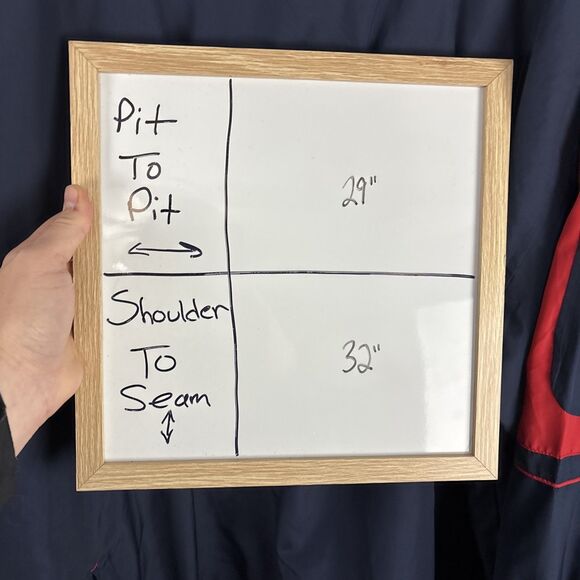 Pit
To
Pit
29"
Shoulder
To
Seam
32"